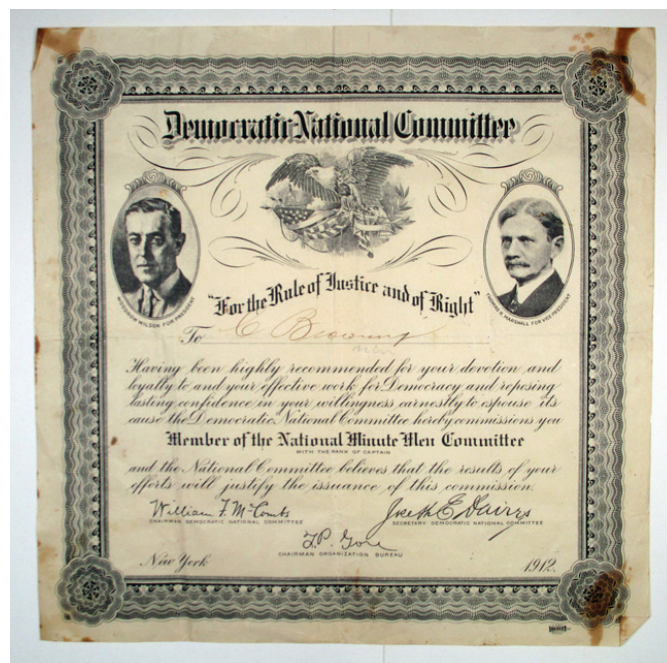 Democratic National Committee
WOODROW WILSON FOR PRESIDENT
THOMAS R. MARSHALL FOR VICE PRESIDENT
"For the Rule of Justice and of Right"
To C Browning
Having been highly recommended for your devotion and
loyalty to and your effective work for Democracy and reposing
lasting confidence in your willingness earnestly to espouse its
cause the Democratic National Committee hereby commissions you
Member of the National Minute Men Committee
WITH THE RANK OF CAPTAIN
and the National Committee believes that the results of your
efforts will justify the issuance of this commission.
William F. McCombs Joseph E. Davies
CHAIRMAN DEMOCRATIC NATIONAL COMMITTEE SECRETARY DEMOCRATIC NATIONAL COMMITTEE
T.P. Gore
CHAIRMAN ORGANIZATION BUREAU
New York 1912.